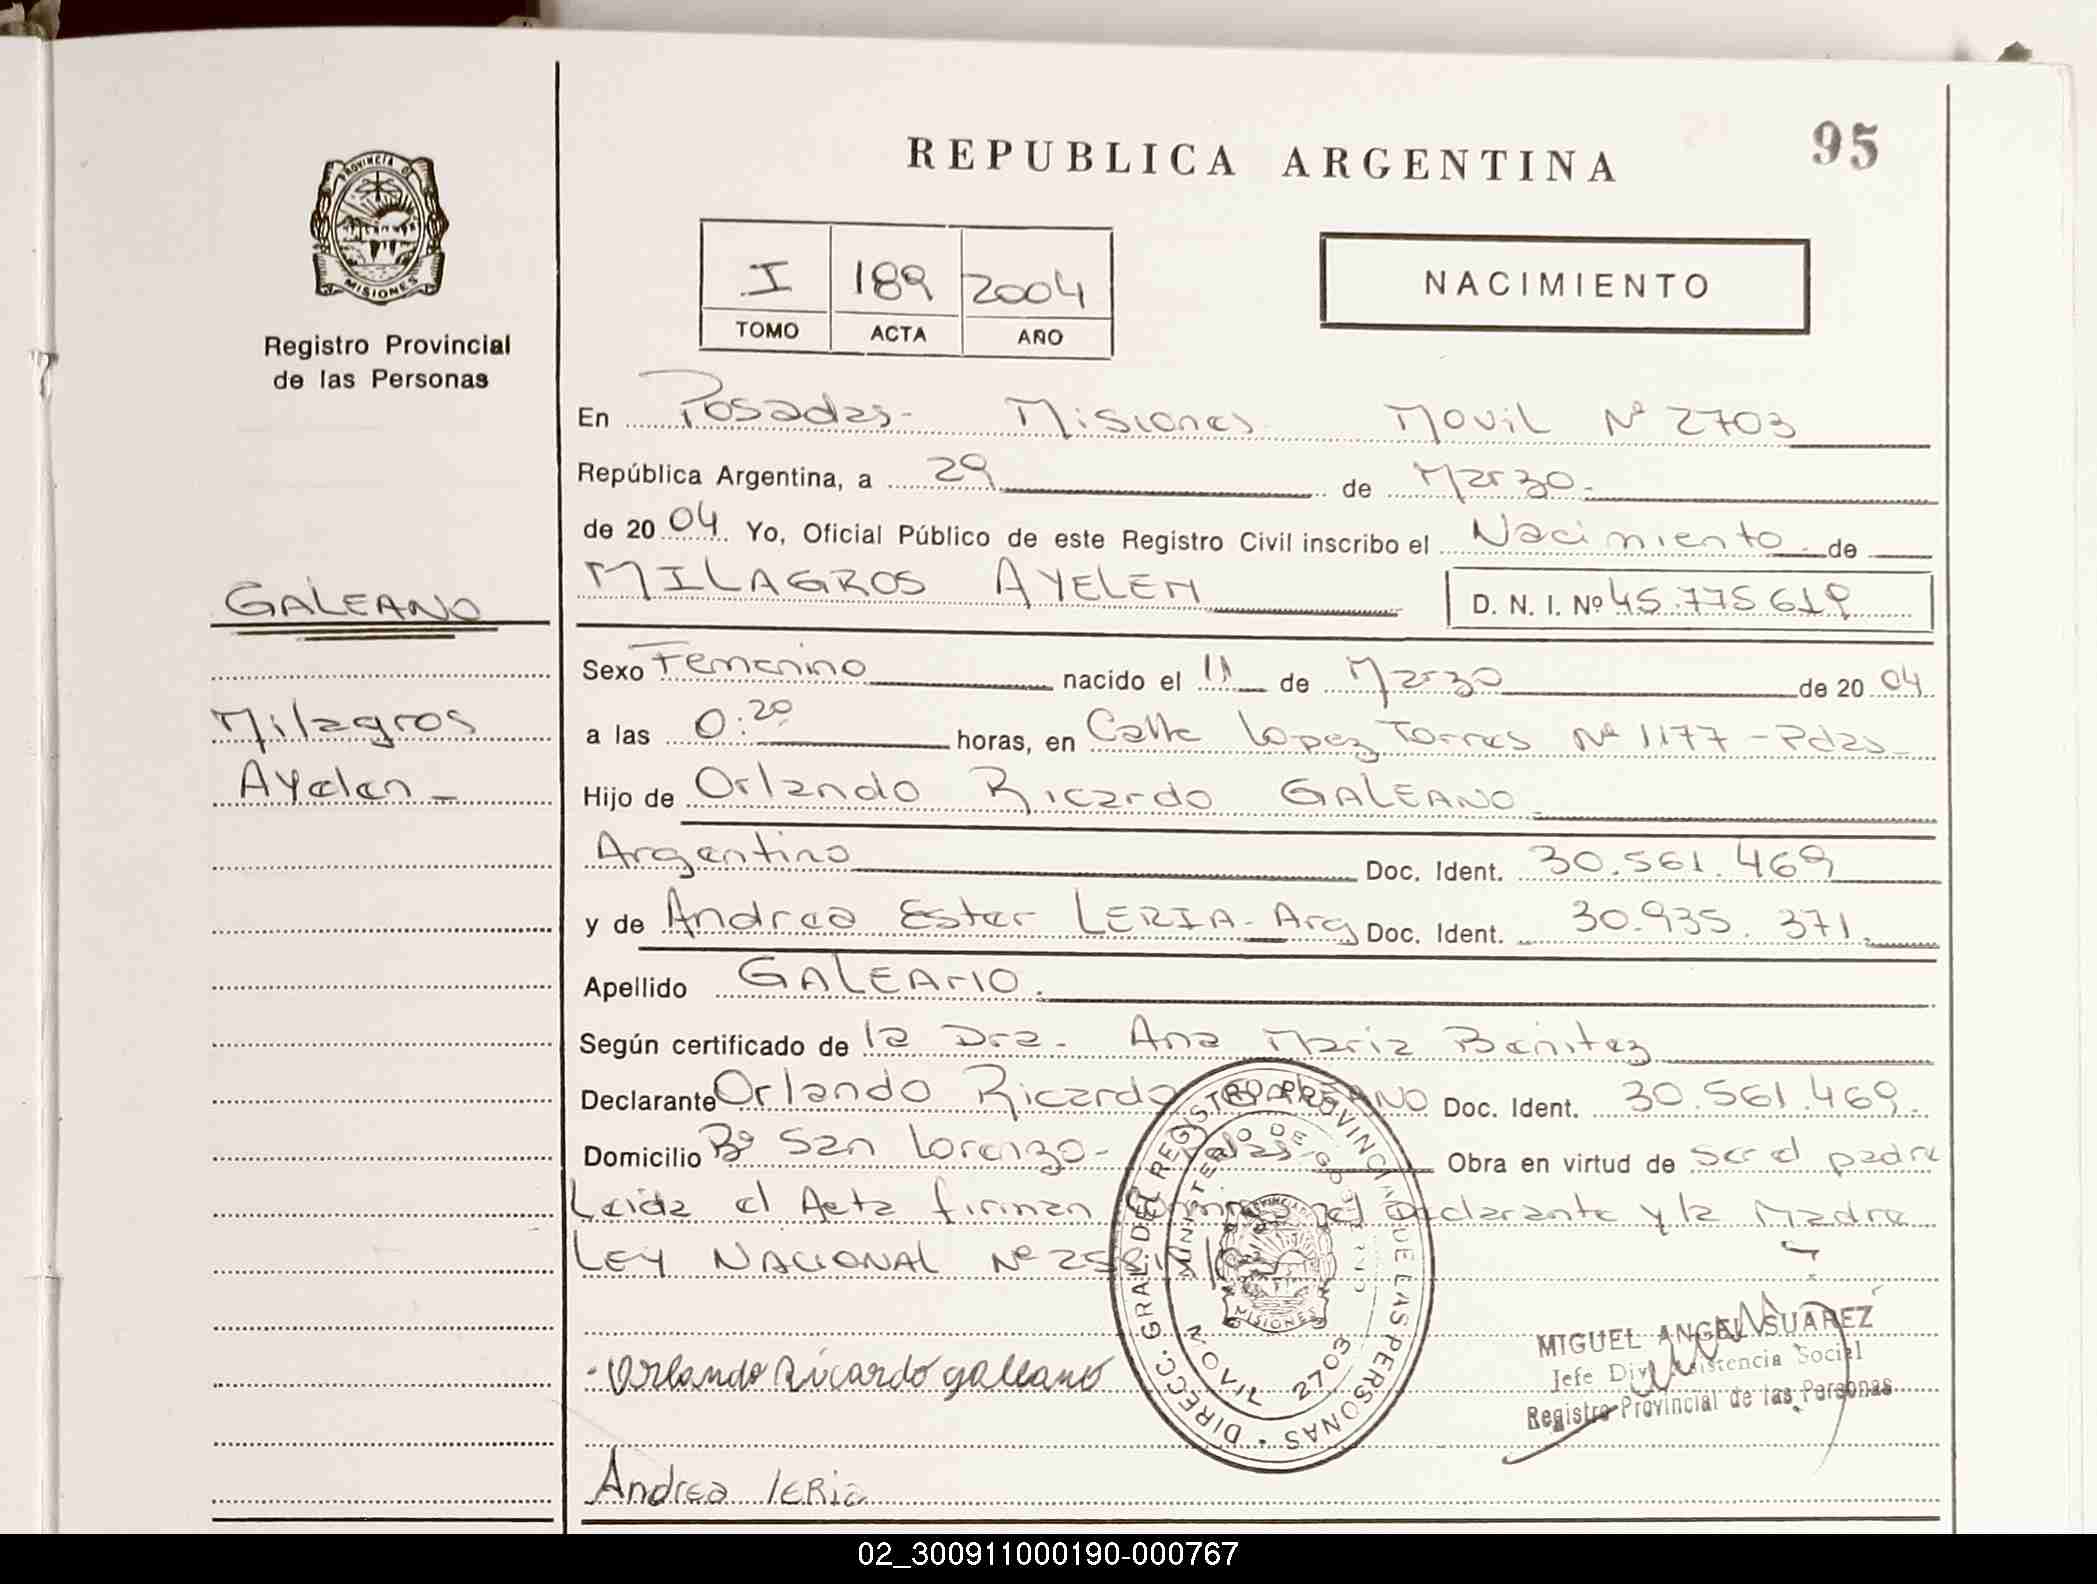 REPUBLICA ARGENTINA
95
PROVINCIA DE
MISIONES
Registro Provincial
de las Personas
I 189 2004
TOMO ACTA AÑO
NACIMIENTO
En Posadas - Misiones Movil Nº 2703
República Argentina, a 29 de Marzo.
de 2004. Yo, Oficial Público de este Registro Civil inscribo el Nacimiento de
MILAGROS AYELEN D. N. I. Nº 45.775.619
GALEANO
Milagros
Ayelen -
Sexo Femenino nacido el 11 de Marzo de 2004
a las 0:20 horas, en Calle Lopez Torres Nº 1177 - Pdas -
Hijo de Orlando Ricardo GALEANO
Argentino Doc. Ident. 30.561.469
y de Andrea Ester LERIA - Arg Doc. Ident. 30.935.371.
Apellido GALEANO.
Según certificado de la Dra. Ana Maria Benitez
Declarante Orlando Ricardo GALEANO Doc. Ident. 30.561.469.
Domicilio Bº San Lorenzo - Pdas - Obra en virtud de ser el padre
Leida el Acta firman conmigo el Declarante y la Madre
LEY NACIONAL Nº
DIRECC. GRAL. DEL REGISTRO PROVINCIAL DE LAS PERSONAS
MINISTERIO DE GOBIERNO
MISIONES
MOVIL 2703
MIGUEL ANGEL SUAREZ
Jefe Div. Asistencia Social
Registro Provincial de las Personas
Orlando Ricardo galeano
Andrea leria
02_300911000190-000767